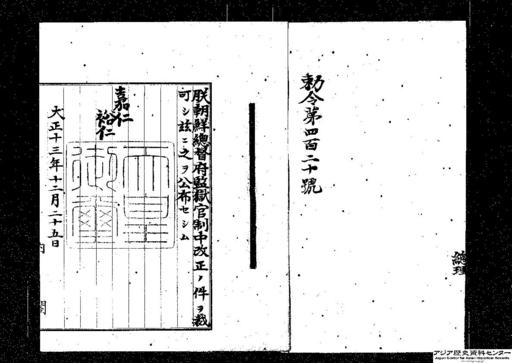 勅令第四百二十號
朕朝鮮總督府監獄官制中改正ノ件ヲ裁
可シ茲ニ之ヲ公布セシム
嘉仁
裕仁
天皇御璽
大正十三年十二月二十五日
内閣
總理
アジア歴史資料センター
Japan Center for Asian Historical Records